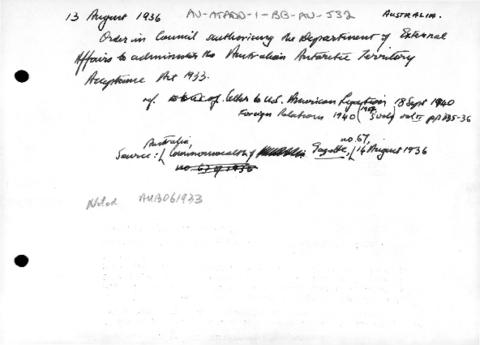 13 August 1936 AU-ATADD-1-BB-AU-532 AUSTRALIA.
Order in Council authorising the Department of External
Affairs to administer the Australian Antarctic Territory
Acceptance Act 1933.
ref. letter to U.S. American Legation 18 Sept 1940
Foreign Relations 1940 vol II pp 335-36
Australia, no. 67,
Source: Commonwealth of Gazette, 14 August 1936
no. 67 of 1936
Noted AUB061933